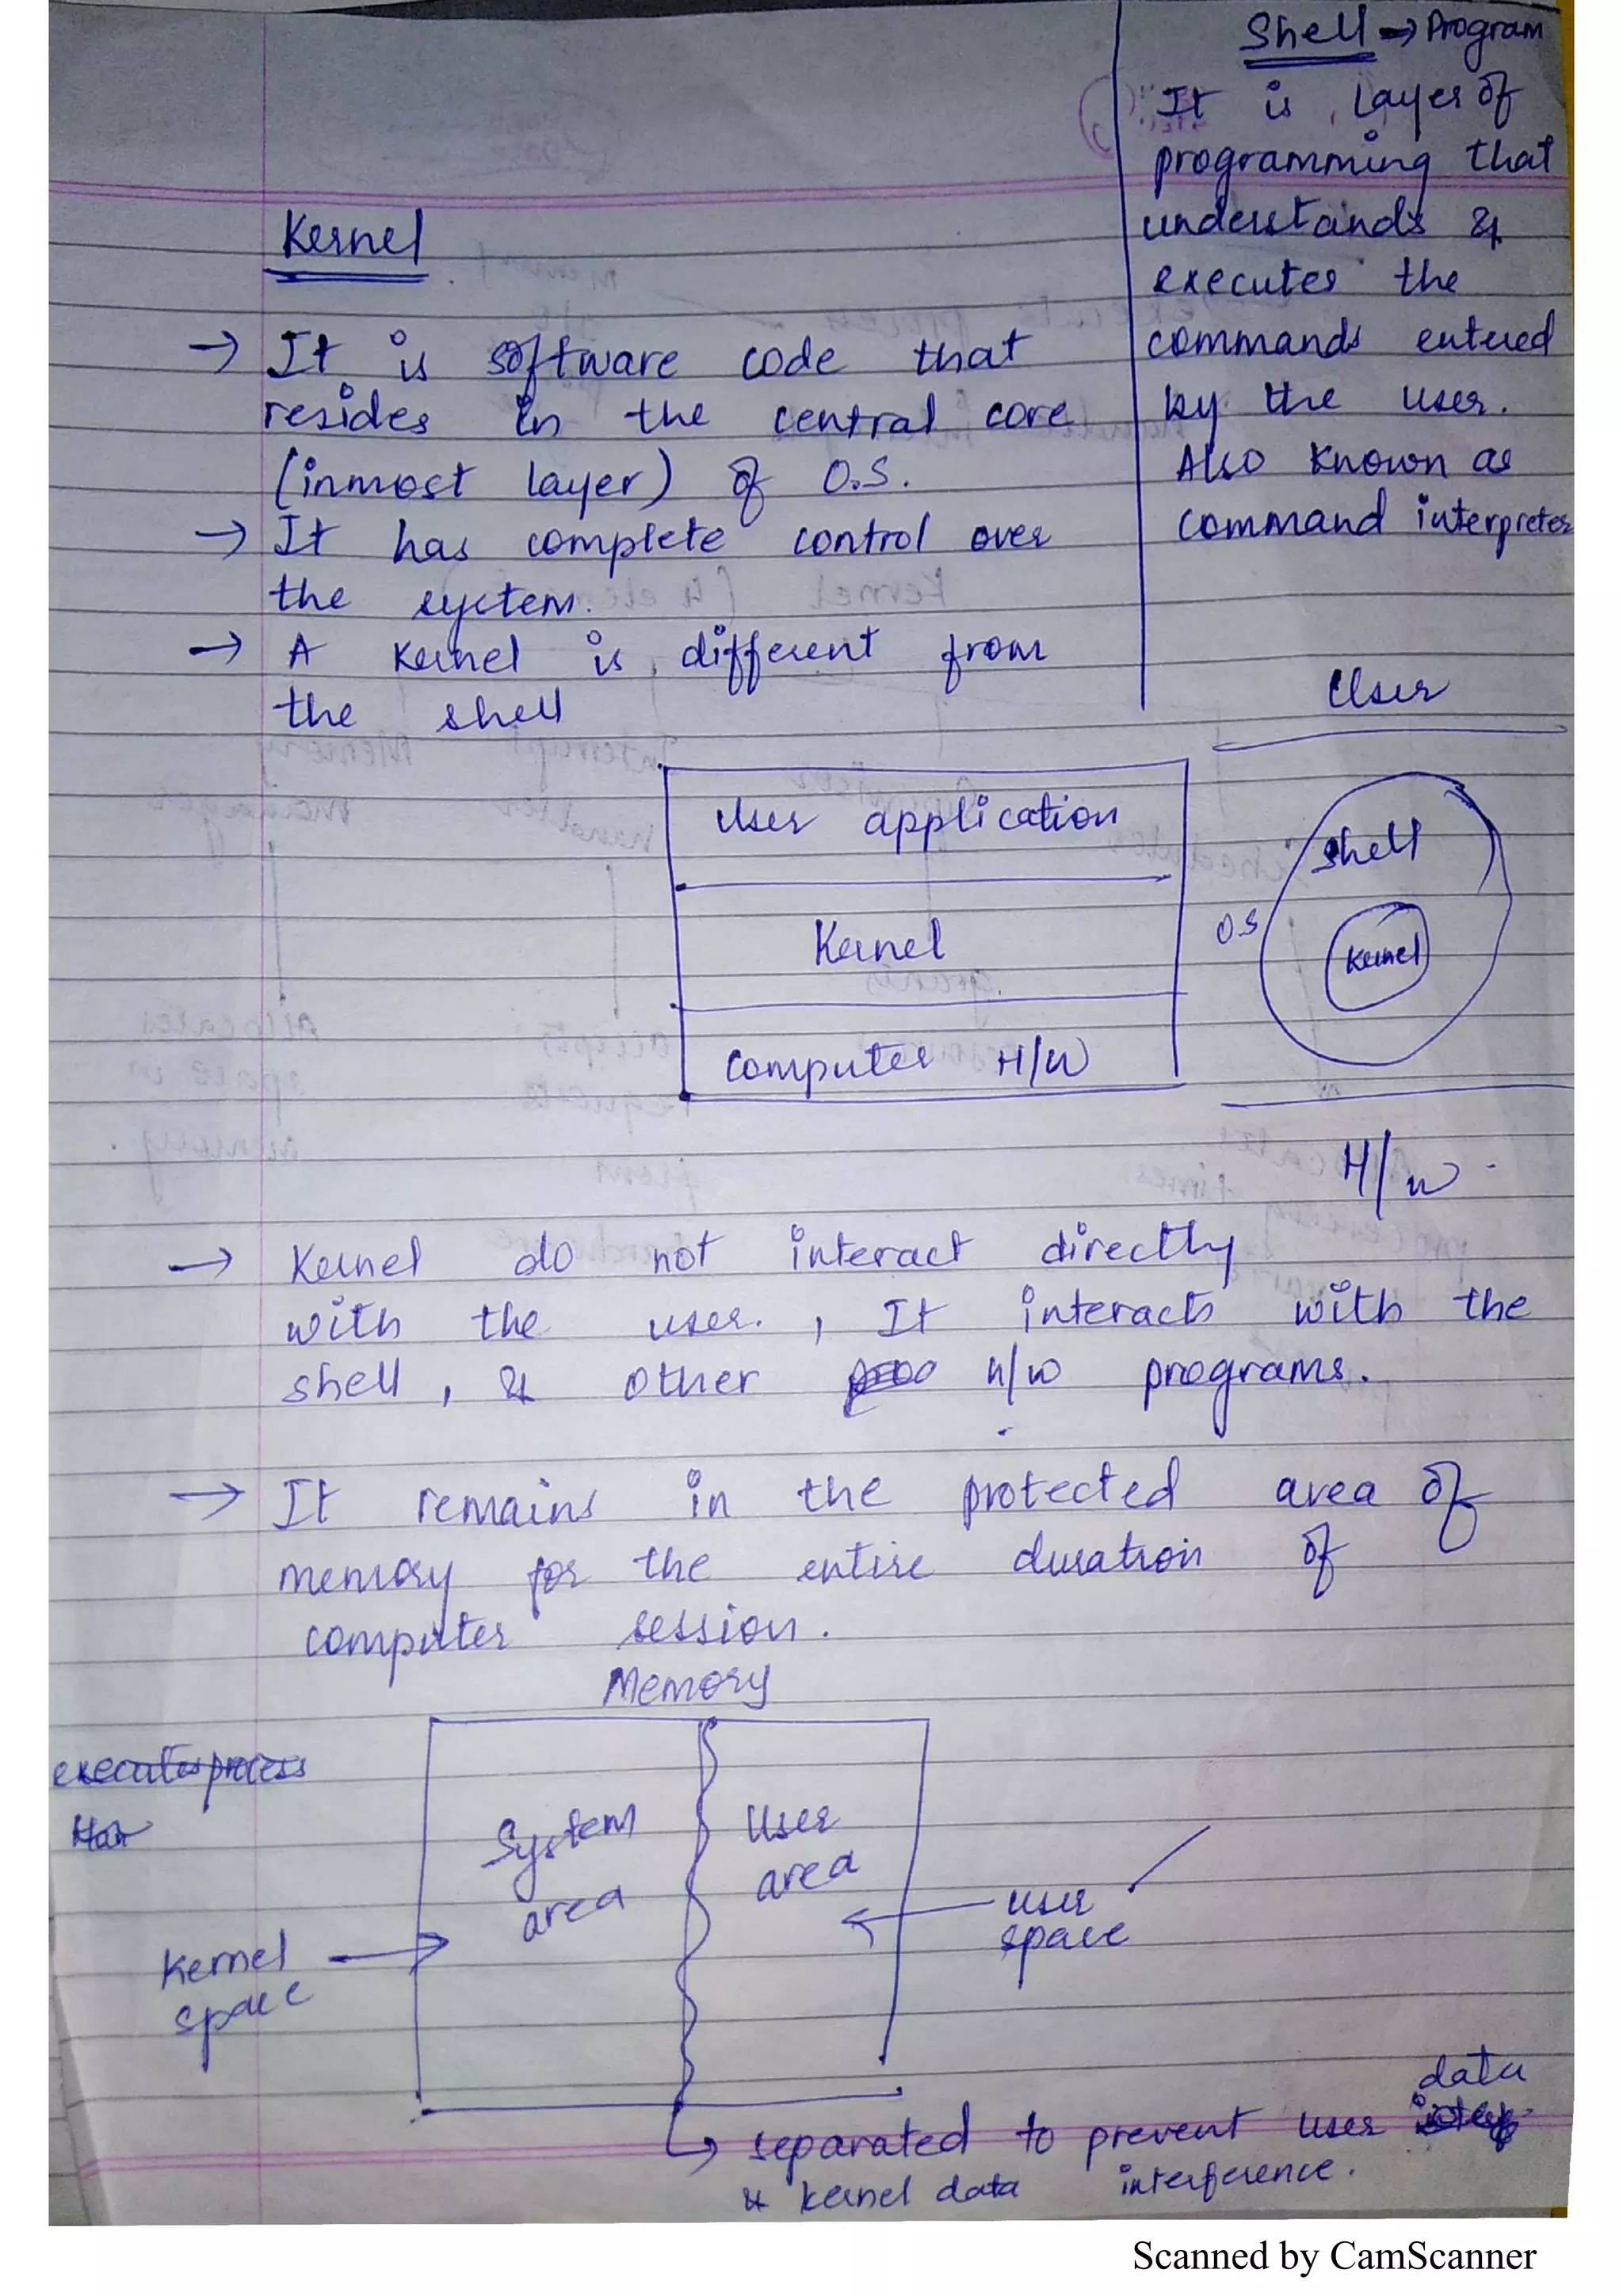 Shell → Program
It is Layer of
programming that
understands &
executes the
commands entered
by the user.
Also known as
command interpreter
Kernel
→ It is software code that
resides in the central core
(inmost layer) of O.S.
→ It has complete control over
the system.
→ A Kernel is different from
the shell
User
User application
Kernel
Computer H/W
Shell
O.S
Kernel
H/W
→ Kernel do not interact directly
with the user. , It interacts with the
shell, & other h/w programs.
→ It remains in the protected area of
memory for the entire duration of
computer session.
Memory
executes process
System area
User area
Kernel space
user space
↳ separated to prevent user data
& kernel data interference.
Scanned by CamScanner